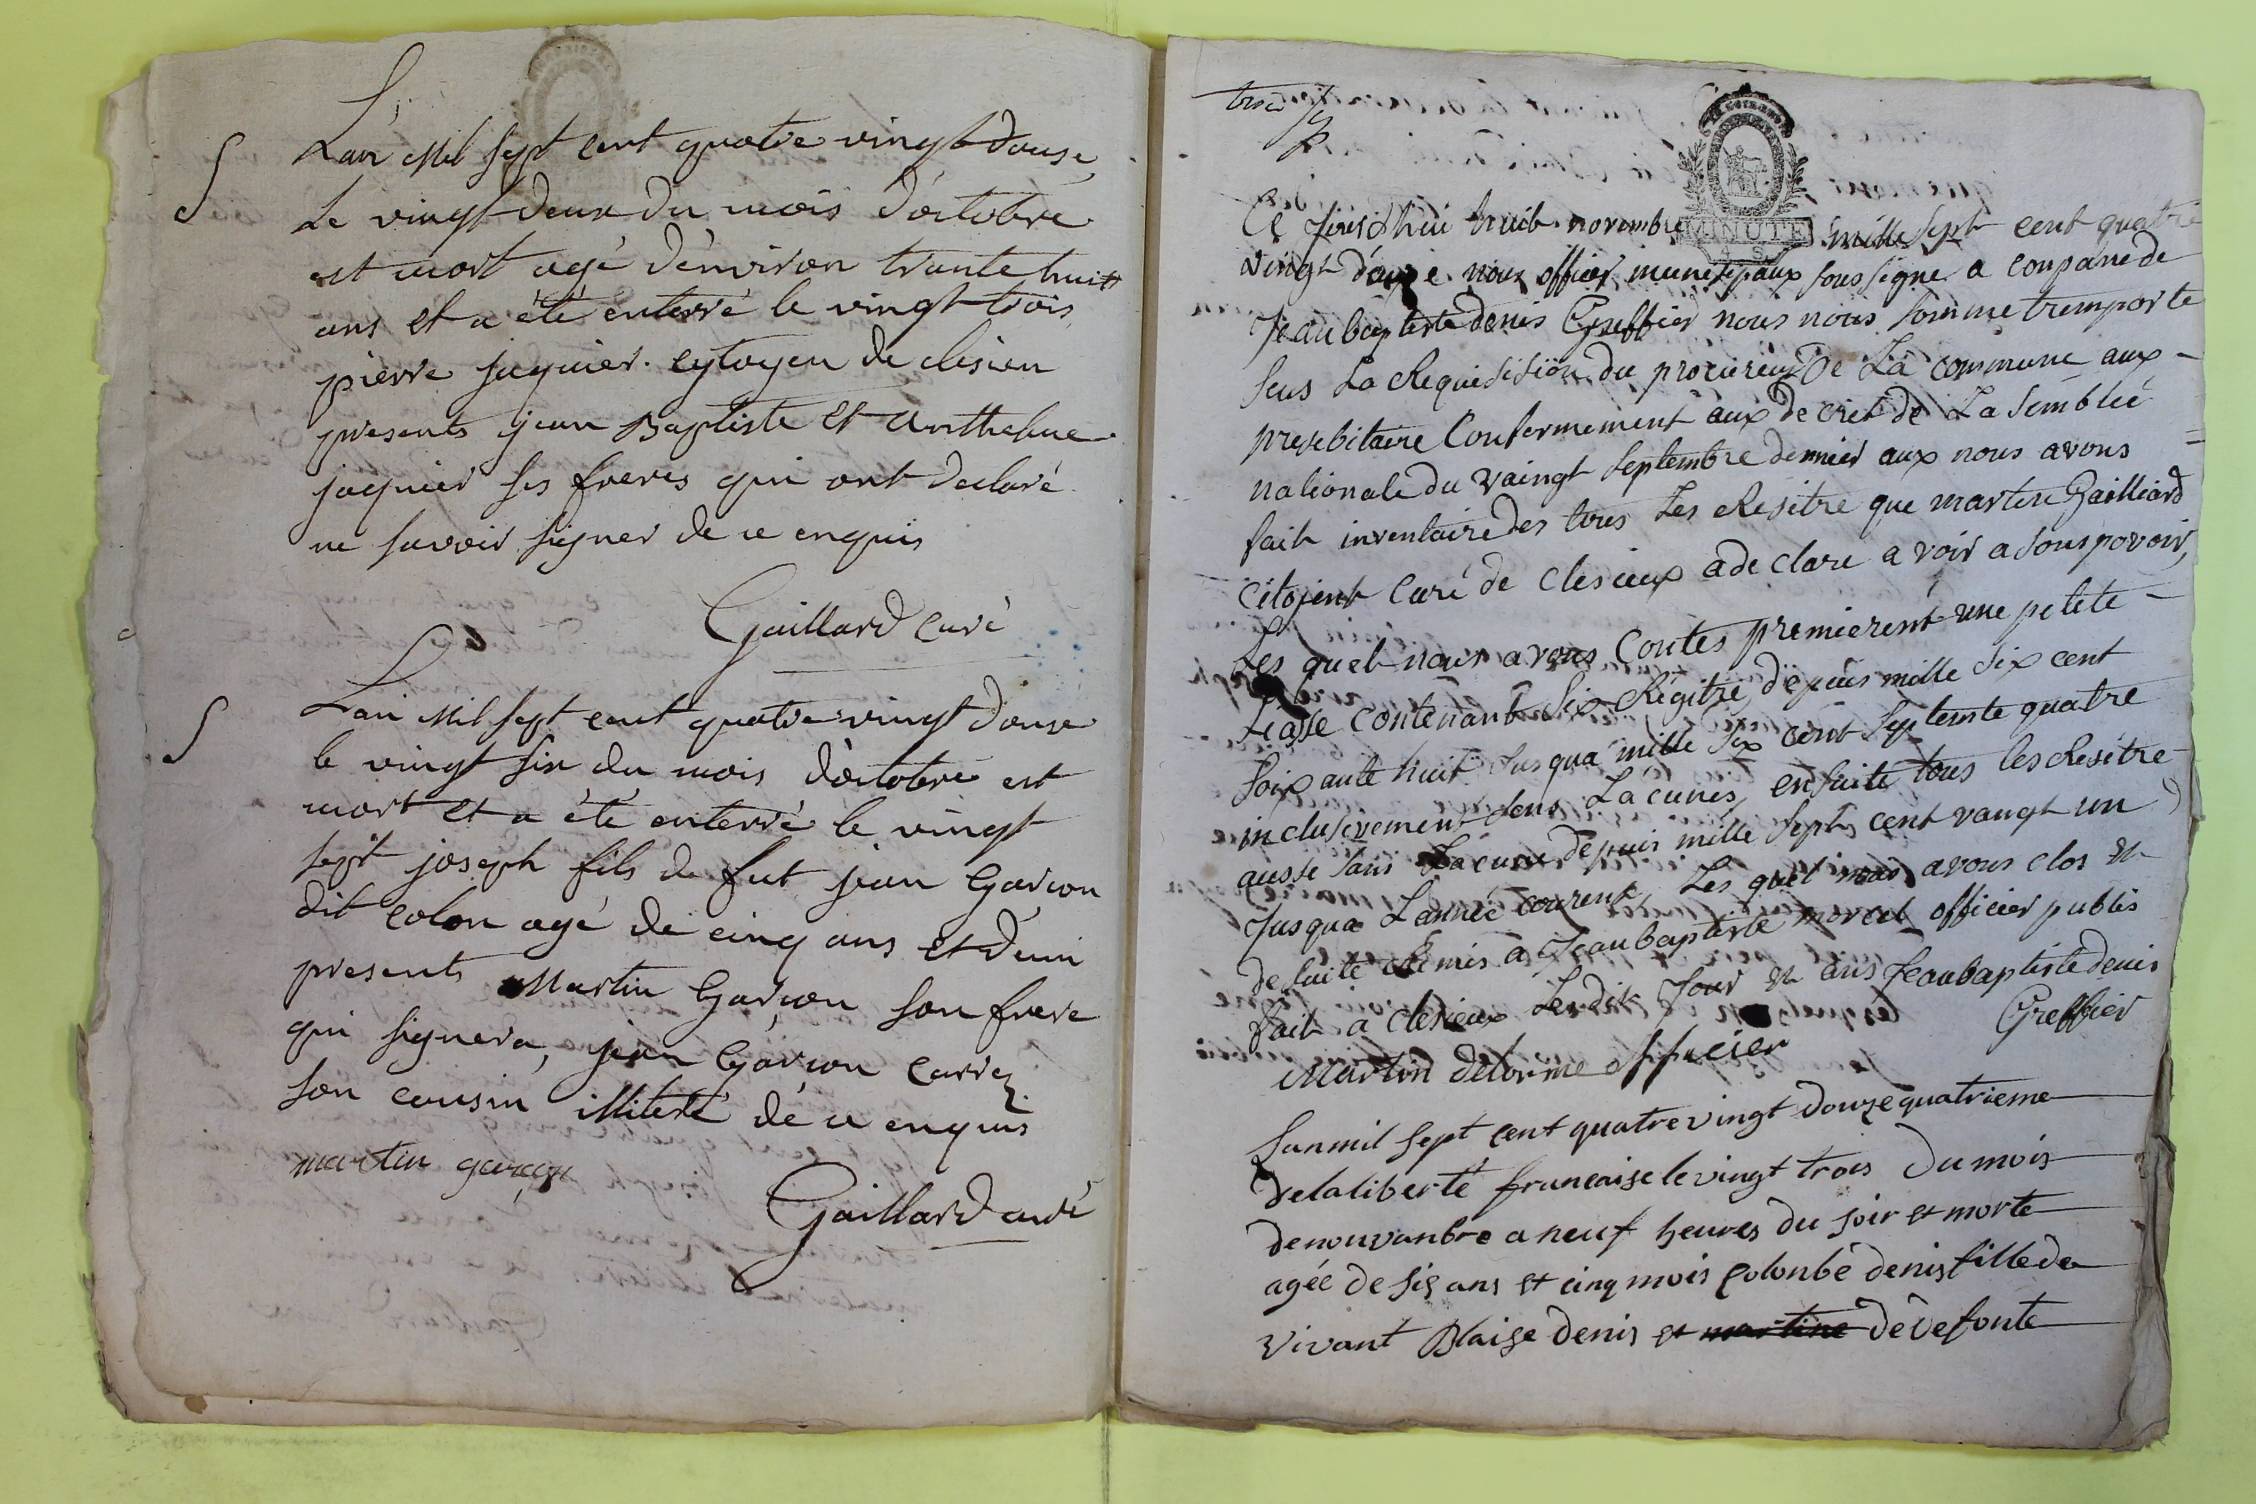 S
L'an Mil sept cent quatre vingt douse
le vingt deux du mois d'octobre
est mort agé d'environ trante huit
ans et a été enterré le vingt trois
pierre jaquier cytoyen de clesieu
presents jean Baptiste et Anthelme
jaquier ses freres qui ont declaré
ne savoir signer de ce enquis
Gaillard curé
S
L'an Mil sept cent quatre vingt douse
le vingt six du mois d'octobre est
mort et a été enterré le vingt
sept joseph fils de fut jean Garçon
dit colon agé de cinq ans et demi
presents Martin Garçon son frere
qui signera, jean Garçon carrez
son cousin illiteré dé ce enquis
martin garçon
Gaillard curé
trois
Ce jourdhui huit novembre mille sept cent quatre
MINUTE
vingt douze nous officier munisipaux soussigne a conpanie de
Jeau baptiste denis Greffier nous nous somme tremporte
seus La Requisision du procureur De La commune aux
presebitaire Confermement aux decret de La semblée
nationale du vaingt septembre dernier aux nous avons
fait inventaire des tous Les Resitre que martin Gailliard
citoient Curé de Clesieux a de clare a voir a sous povoir,
Les quel nous avons Contes premierent une petite
Liasse contenant six Régitre depuis mille six cent
soixante huit Jusqua mille six cent septente quatre
inclusivement sens Lacunes, ensuite tous les Resitre
ausse sans Lacune depuis mille sept cent vaingt un
Jusqua Lannée courent, Les quel nous avons clos et
de suite Remis a Jeaubaptiste morel officier publis
fait a clesieux Lesdit Jour et ans Jeaubaptiste denis
Greffier
Martin delorme offficier
Lanmil sept cent quatrevingt douze quatrieme
de la liberté francaise le vingt trois du mois
denouvanbre a neuf heures du soir et morte
agée de six ans et cinq mois Colonbe denis fille de
vivant Blaise denis et martine de Defonte